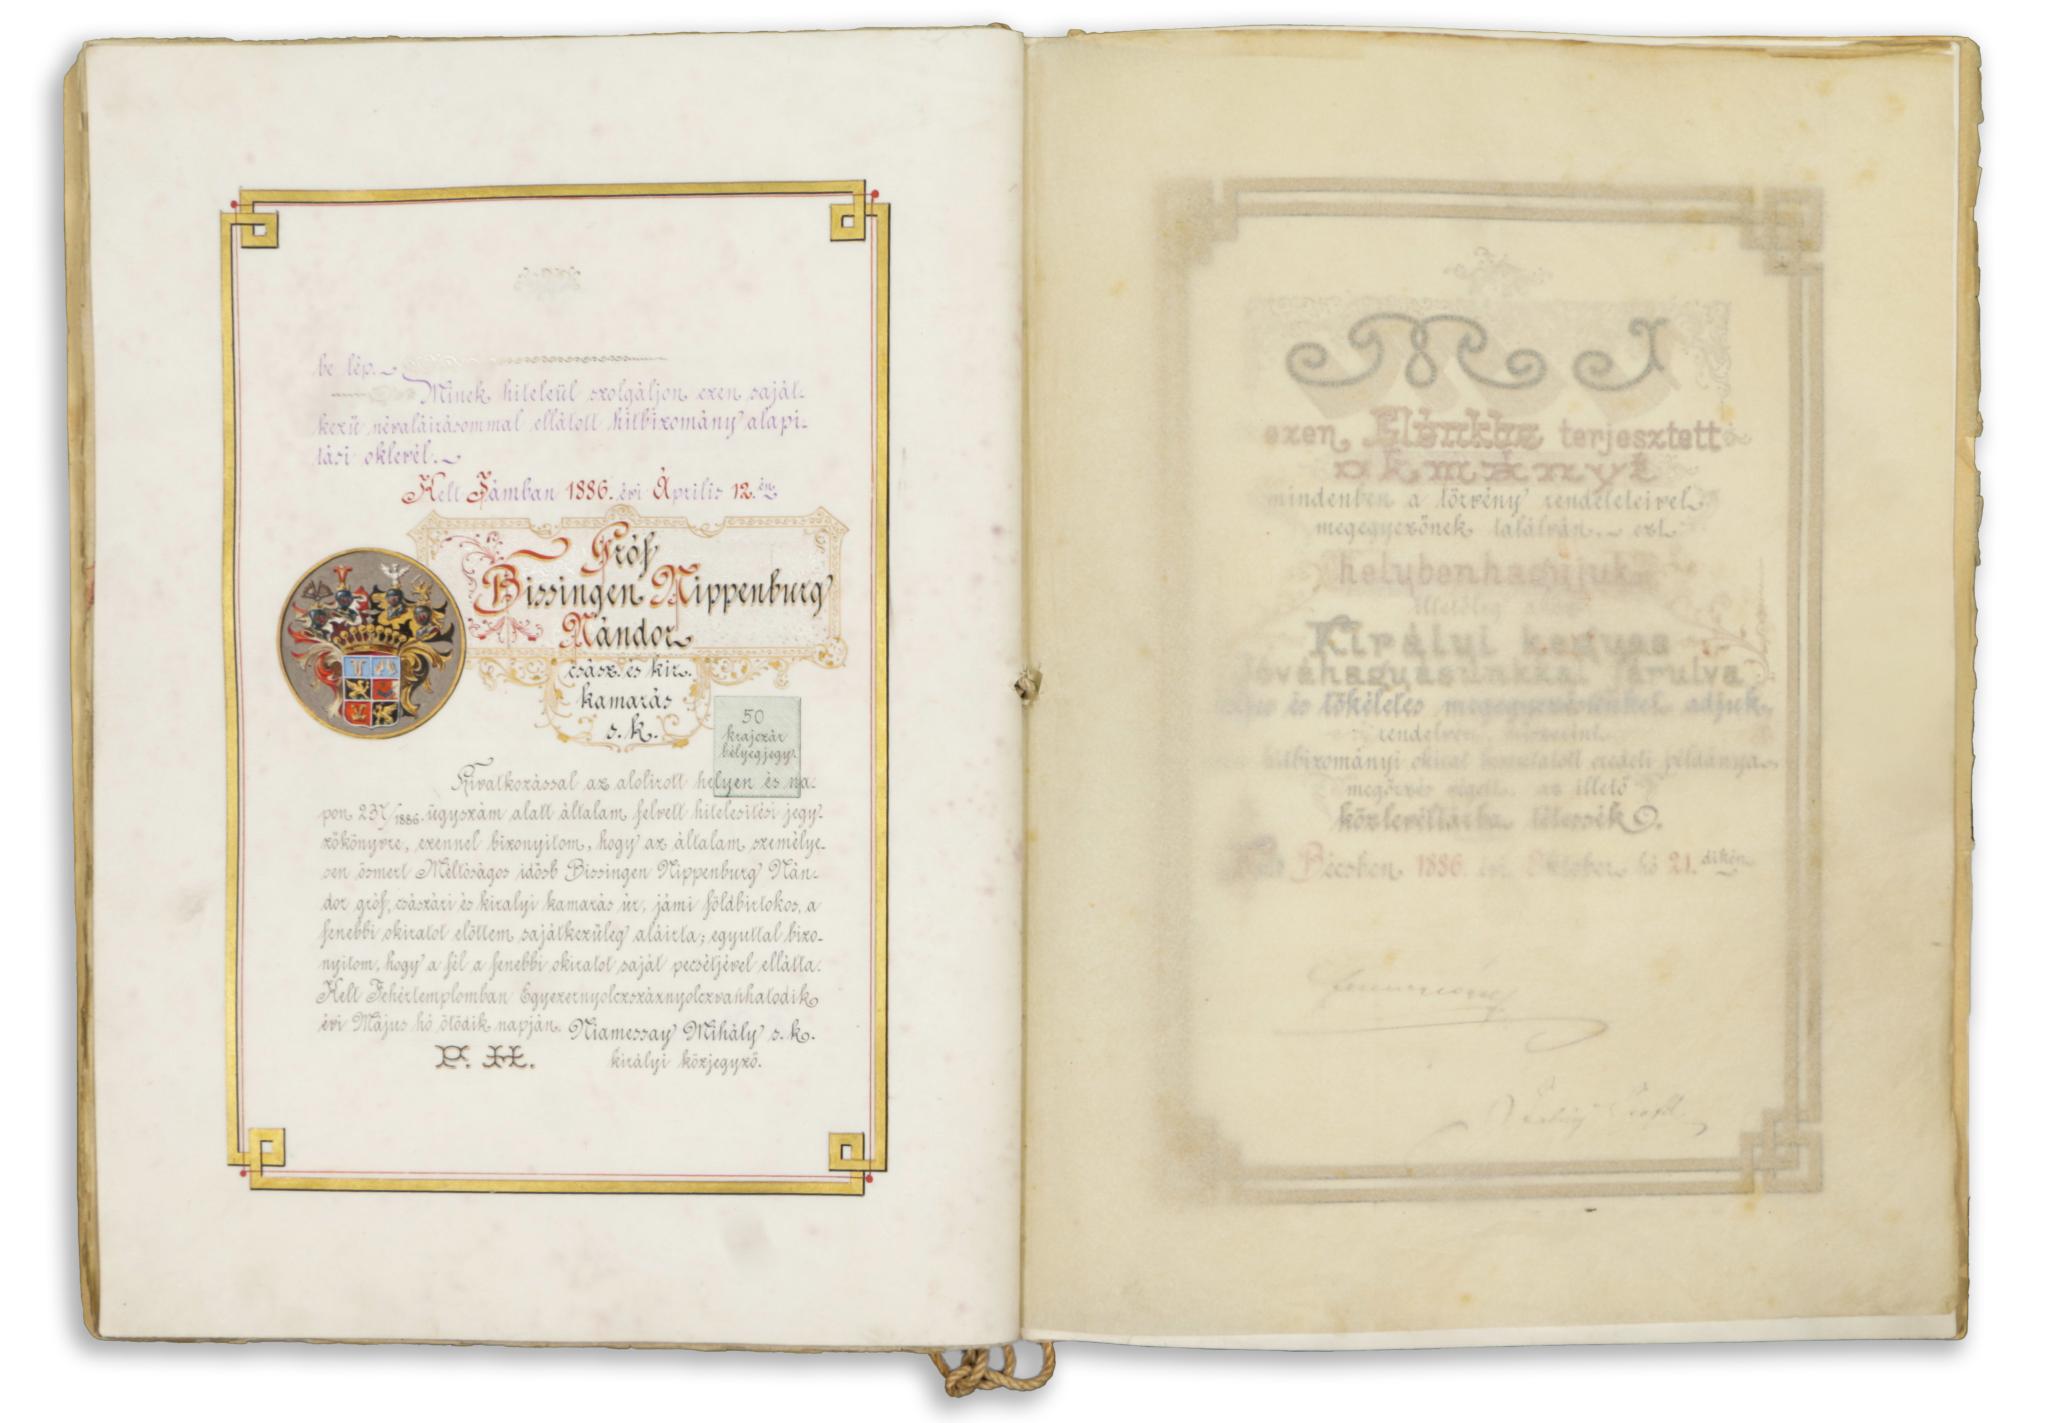 be lép.
Minek hiteleül szolgáljon ezen saját-
kezű névaláirásommal ellátott hitbizomány alapi-
tási oklevél.
Kelt Jámban 1886. évi Április 12. én
Gróf
Bissingen Nippenburg
Nándor
csász. és kir.
kamarás
s. k.
50
krajczár
bélyegjegy.
Hivatkozással az alolirott helyen és na-
pon 237/1886. ügyszám alatt általam felvett hitelesitési jegy-
zőkönyvre, ezennel bizonyitom, hogy az általam személye-
sen ösmert Méltóságos idősb Bissingen Nippenburg Nán-
dor gróf, császári és királyi kamarás úr, jámi földbirtokos, a
fenebbi okiratot előttem sajátkezüleg aláirta; egyuttal bizo-
nyitom, hogy a fél a fenebbi okiratot saját pecsétjével ellátta.
Kelt Fehértemplomban Egyezernyolczszáznyolczvanhatodik
évi Május hó ötödik napján. Niamessay Mihály s. k.
P. H. királyi közjegyző.
MI
ezen Elénkbe terjesztett
okmányt
mindenben a törvény rendeleteivel
megegyezőnek találván, ezt
helybenhagyjuk
illetőleg ahoz
Királyi kegyes
Jóváhagyásunkkal járulva
és tökéletes megegyezésünket adjuk,
rendelven,
hitbizományi okirat eredeti példánya
megőrzés végett az illető
közlevéltárba tétessék.
Bécsben 1886. évi Oktober hó 21. dikén